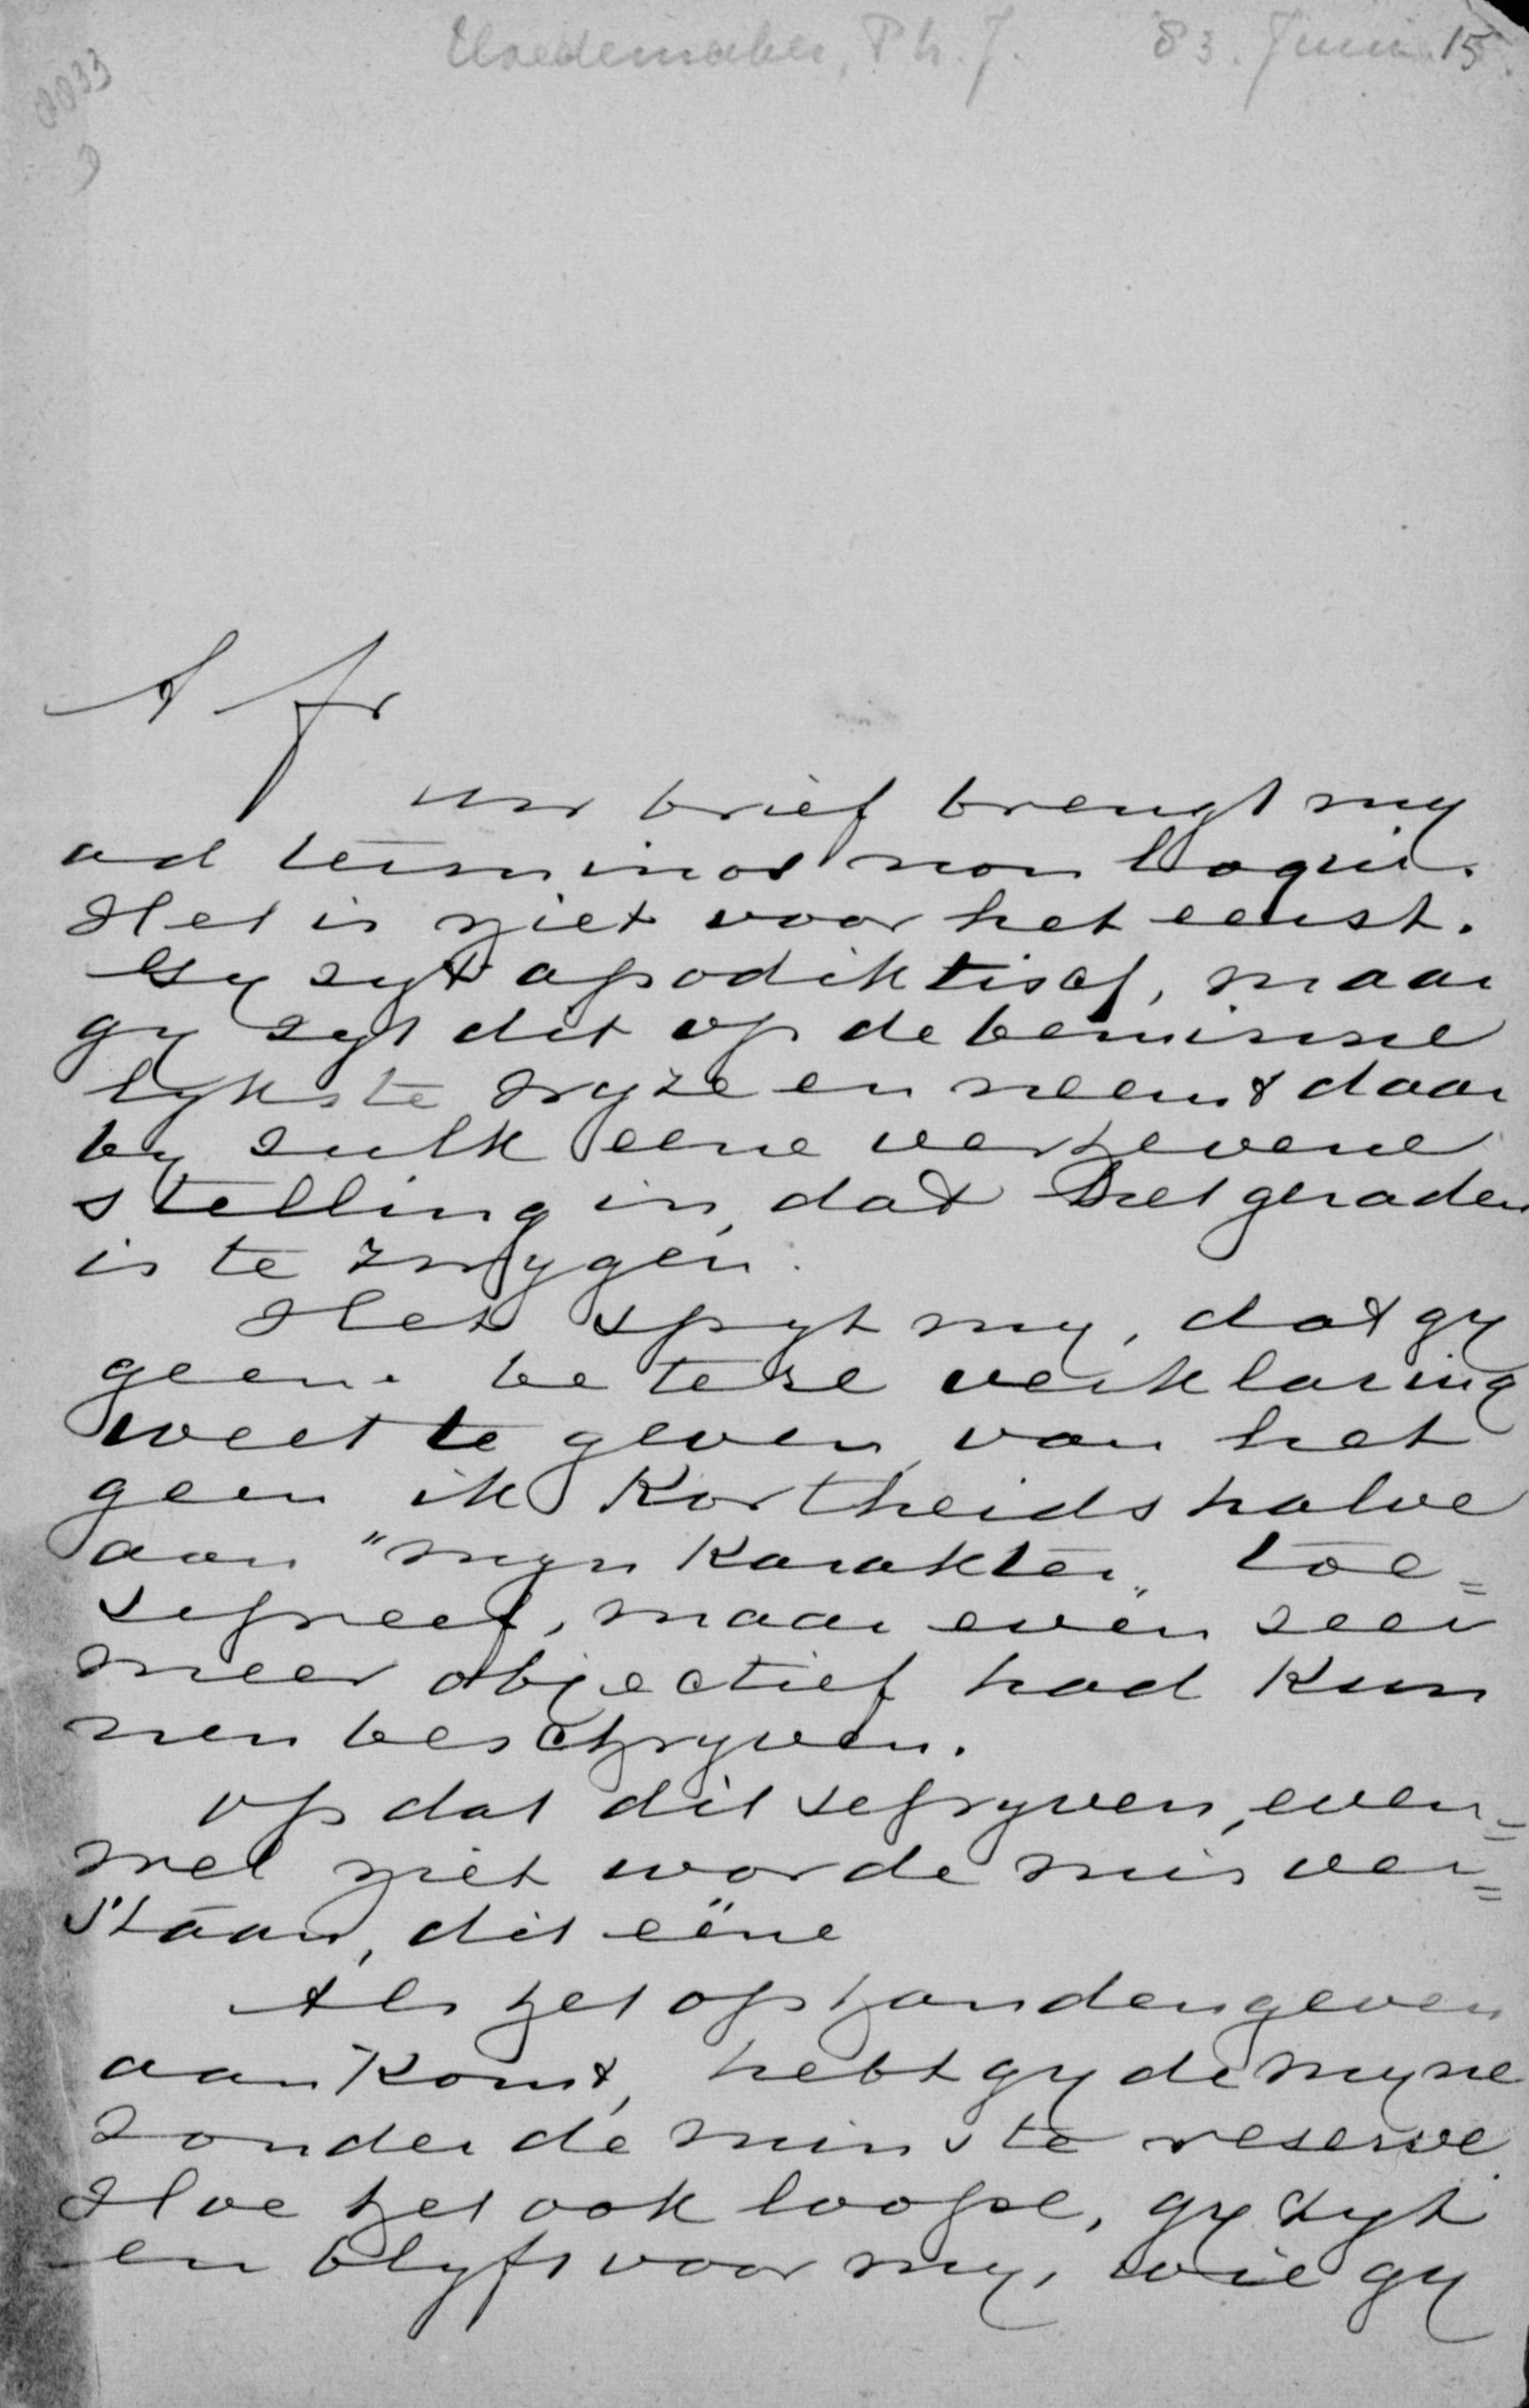 Hoedemaker, Ph. J. 83. Juni 15.
0033
A fr
uw brief brengt my
ad terminos non loqui.
Het is niet voor het eerst.
Gy zyt apodiktisch, maar
gy zyt dit op de beminne
lykste wyze en neemt daar
by zulk eene verhevene
stelling in, dat het geraden
is te zwygen.
Het spyt my, dat gy
geene betere verklaring
weet te geven van het
geen ik kortheidshalve
aan "myn karakter„ toe=
schreef, maar even zeer
meer objectief had kun
nen beschryven.
Opdat dit schryven, even=
wel niet worde misver=
staan, dit eëne
Als het op handengeven
aankomt, hebt gy de myne
zonder de minste reserve.
Hoe het ook loope, gy zyt
en blyft voor my, wie gy